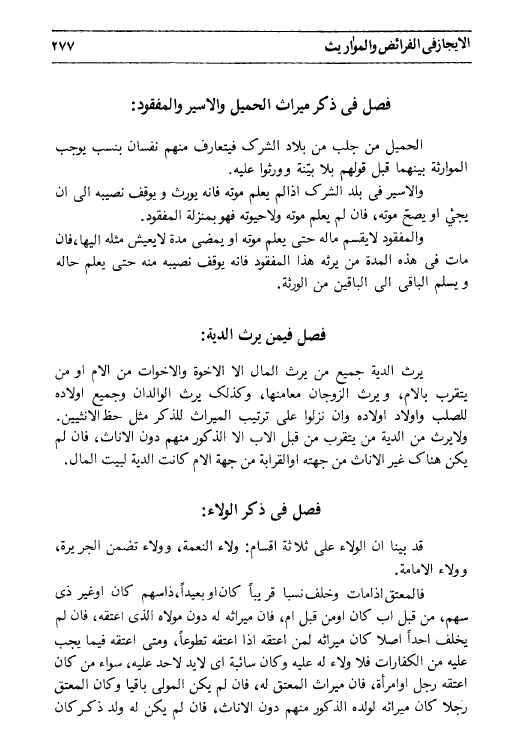 الايجاز فى الفرائض والمواريث ٢٧٧
فصل فى ذكر ميراث الحميل والاسير والمفقود:
الحميل من جلب من بلاد الشرك فيتعارف منهم نفسان بنسب يوجب
الموارثة بينهما قبل قولهم بلا بيّنة وورثوا عليه.
والاسير فى بلد الشرك اذالم يعلم موته فانه يورث و يوقف نصيبه الى ان
يجئ او يصحّ موته، فان لم يعلم موته ولاحيوته فهو بمنزلة المفقود.
والمفقود لايقسم ماله حتى يعلم موته او يمضى مدة لايعيش مثله اليها،فان
مات فى هذه المدة من يرثه هذا المفقود فانه يوقف نصيبه منه حتى يعلم حاله
و يسلم الباقى الى الباقين من الورثة.
فصل فيمن يرث الدية:
يرث الدية جميع من يرث المال الا الاخوة والاخوات من الام او من
يتقرب بالام، و يرث الزوجان معامنها، وكذلك يرث الوالدان وجميع اولاده
للصلب واولاد اولاده وان نزلوا على ترتيب الميراث للذكر مثل حظ الانثيين.
ولايرث من الدية من يتقرب من قبل الاب الا الذكور منهم دون الاناث، فان لم
يكن هناك غير الاناث من جهته اوالقرابة من جهة الام كانت الدية لبيت المال.
فصل فى ذكر الولاء:
قد بينا ان الولاء على ثلاثة اقسام: ولاء النعمة، وولاء تضمن الجريرة،
وولاء الامامة.
فالمعتق اذامات وخلف نسبا قريباً كان او بعيداً،ذاسهم كان اوغير ذى
سهم، من قبل اب كان اومن قبل ام، فان ميراثه له دون مولاه الذى اعتقه، فان لم
يخلف احداً اصلا كان ميراثه لمن اعتقه اذا اعتقه تطوعاً، ومتى اعتقه فيما يجب
عليه من الكفارات فلا ولاء له عليه وكان سائبة اى لايد لاحد عليه، سواء من كان
اعتقه رجل اوامرأة، فان ميراث المعتق له، فان لم يكن المولى باقيا وكان المعتق
رجلا كان ميراثه لولده الذكور منهم دون الاناث، فان لم يكن له ولد ذكر كان